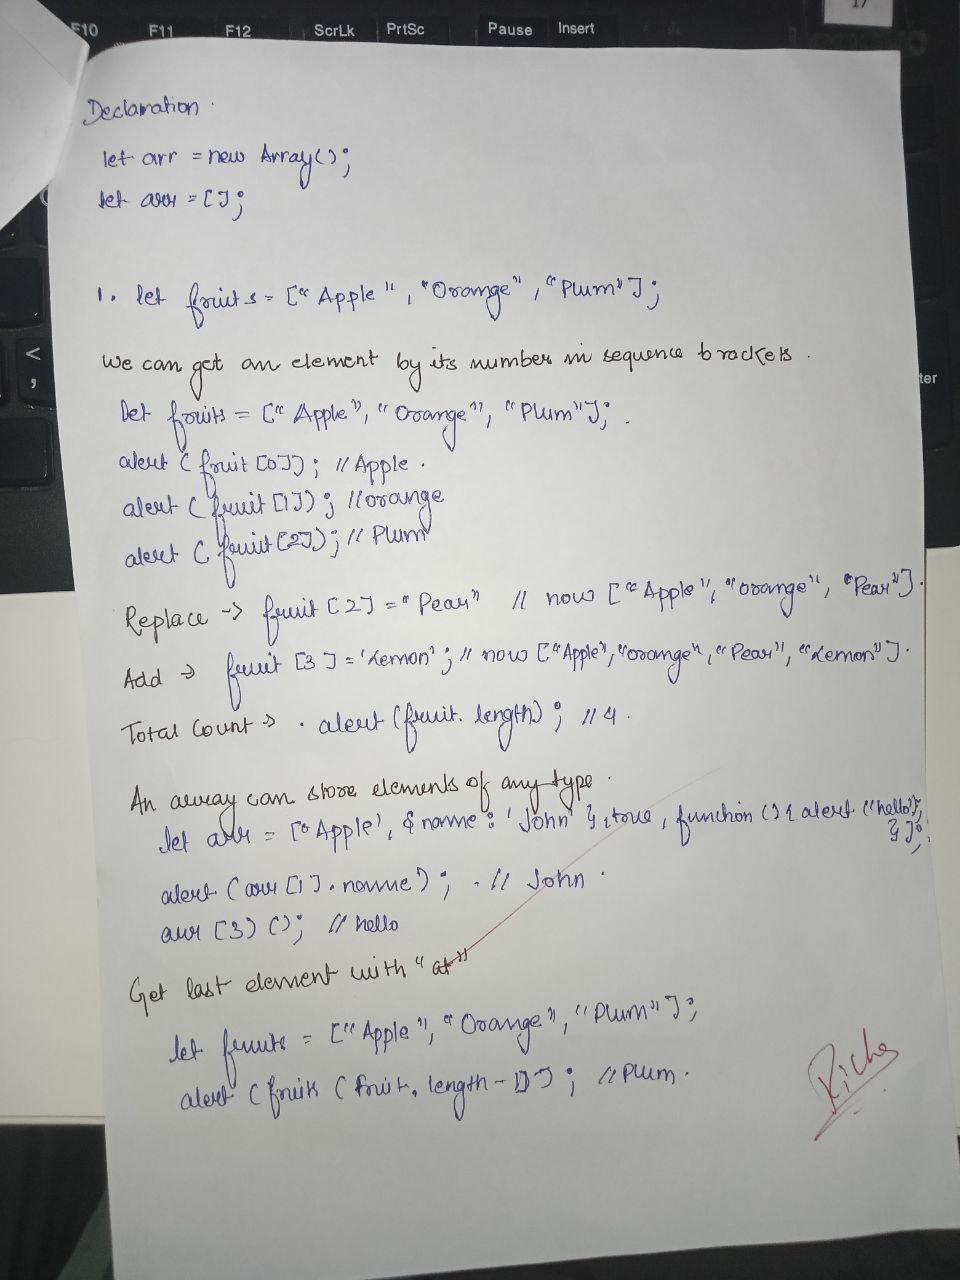 F10 F11 F12 ScrLk PrtSc Pause Insert
17
Declaration.
let arr = new Array();
let arr = [];
1. let fruits = ["Apple", "Orange", "Plum"];
We can get an element by its number in sequence brackets.
Let fruits = ["Apple", "Orange", "Plum"];.
alert (fruit[0]); // Apple.
alert (fruit[1]); // orange
alert (fruit[2]); // Plum
Replace -> fruit [2] = "Pear" // now ["Apple", "orange", "Pear"].
Add -> fruit [3] = 'Lemon'; // now ["Apple", "orange", "Pear", "Lemon"].
Total Count -> . alert (fruit. length); // 4.
An array can store elements of any type.
let arr = ["Apple', { name: 'John' }, true, function () { alert ("hello");
}];
alert (arr [1]. name); . // John.
arr [3) (); // hello
Get last element with "at"
let fruits = ["Apple", "Orange", "Plum"];
alert (fruits (fruit. length - 1)]; // Plum.
Richa
<
,
ter